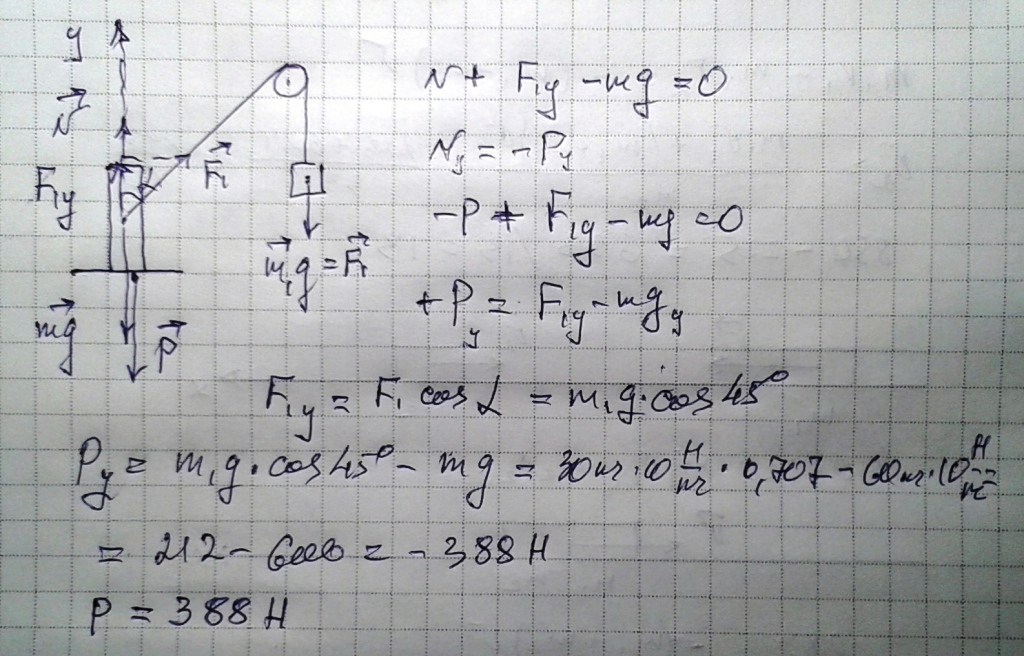 y
N⃗
F₁y
F⃗₁
m⃗₁g = F⃗₁
m⃗g
P⃗
N + F₁y - mg = 0
Ny = - Py
-P + F₁y - mg = 0
+ Py = F₁y - mgy
F₁y = F₁ cos α = m₁g · cos 45°
Py = m₁g · cos 45° - mg = 30 кг · 10 Н/кг · 0,707 - 60 кг · 10 Н/кг =
= 212 - 600 = - 388 Н
P = 388 Н